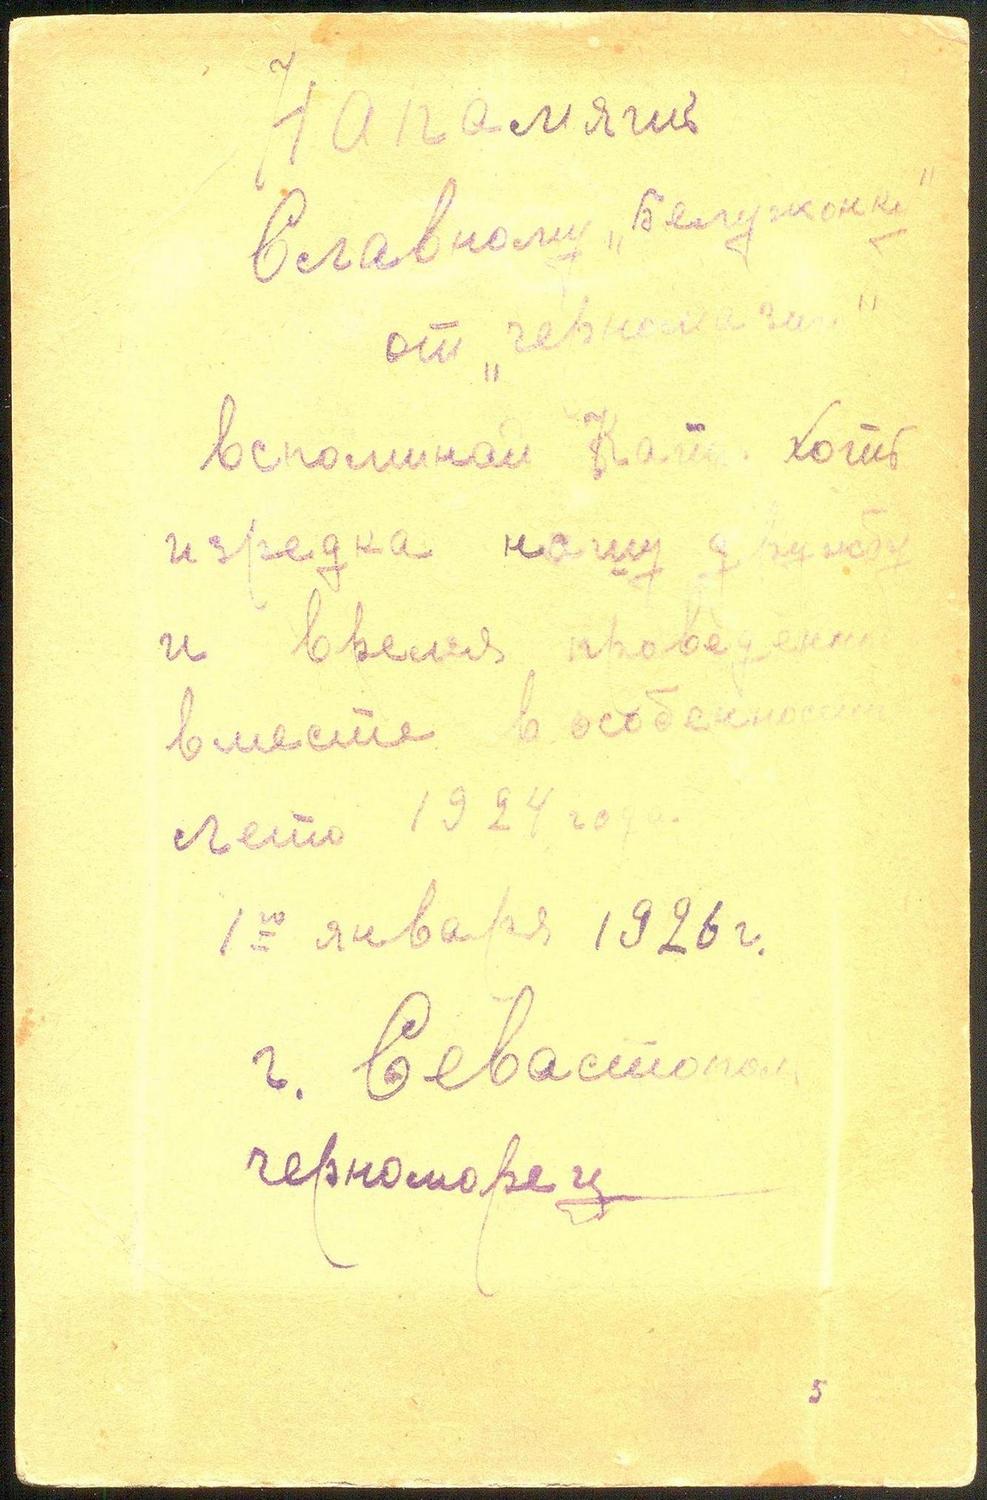 На память
Славному „Белужонку"
от „черномазы"
вспоминай Катя хоть
изредка нашу дружбу
и время проведен
вместе в особенности
лето 1924 года.
1го января 1926 г.
г. Севастополь
черноморец
5